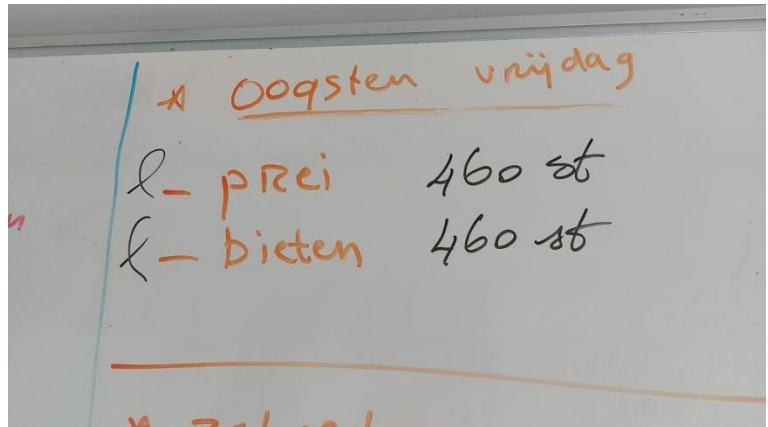 * Oogsten vrijdag
- prei 460 st
- bieten 460 st